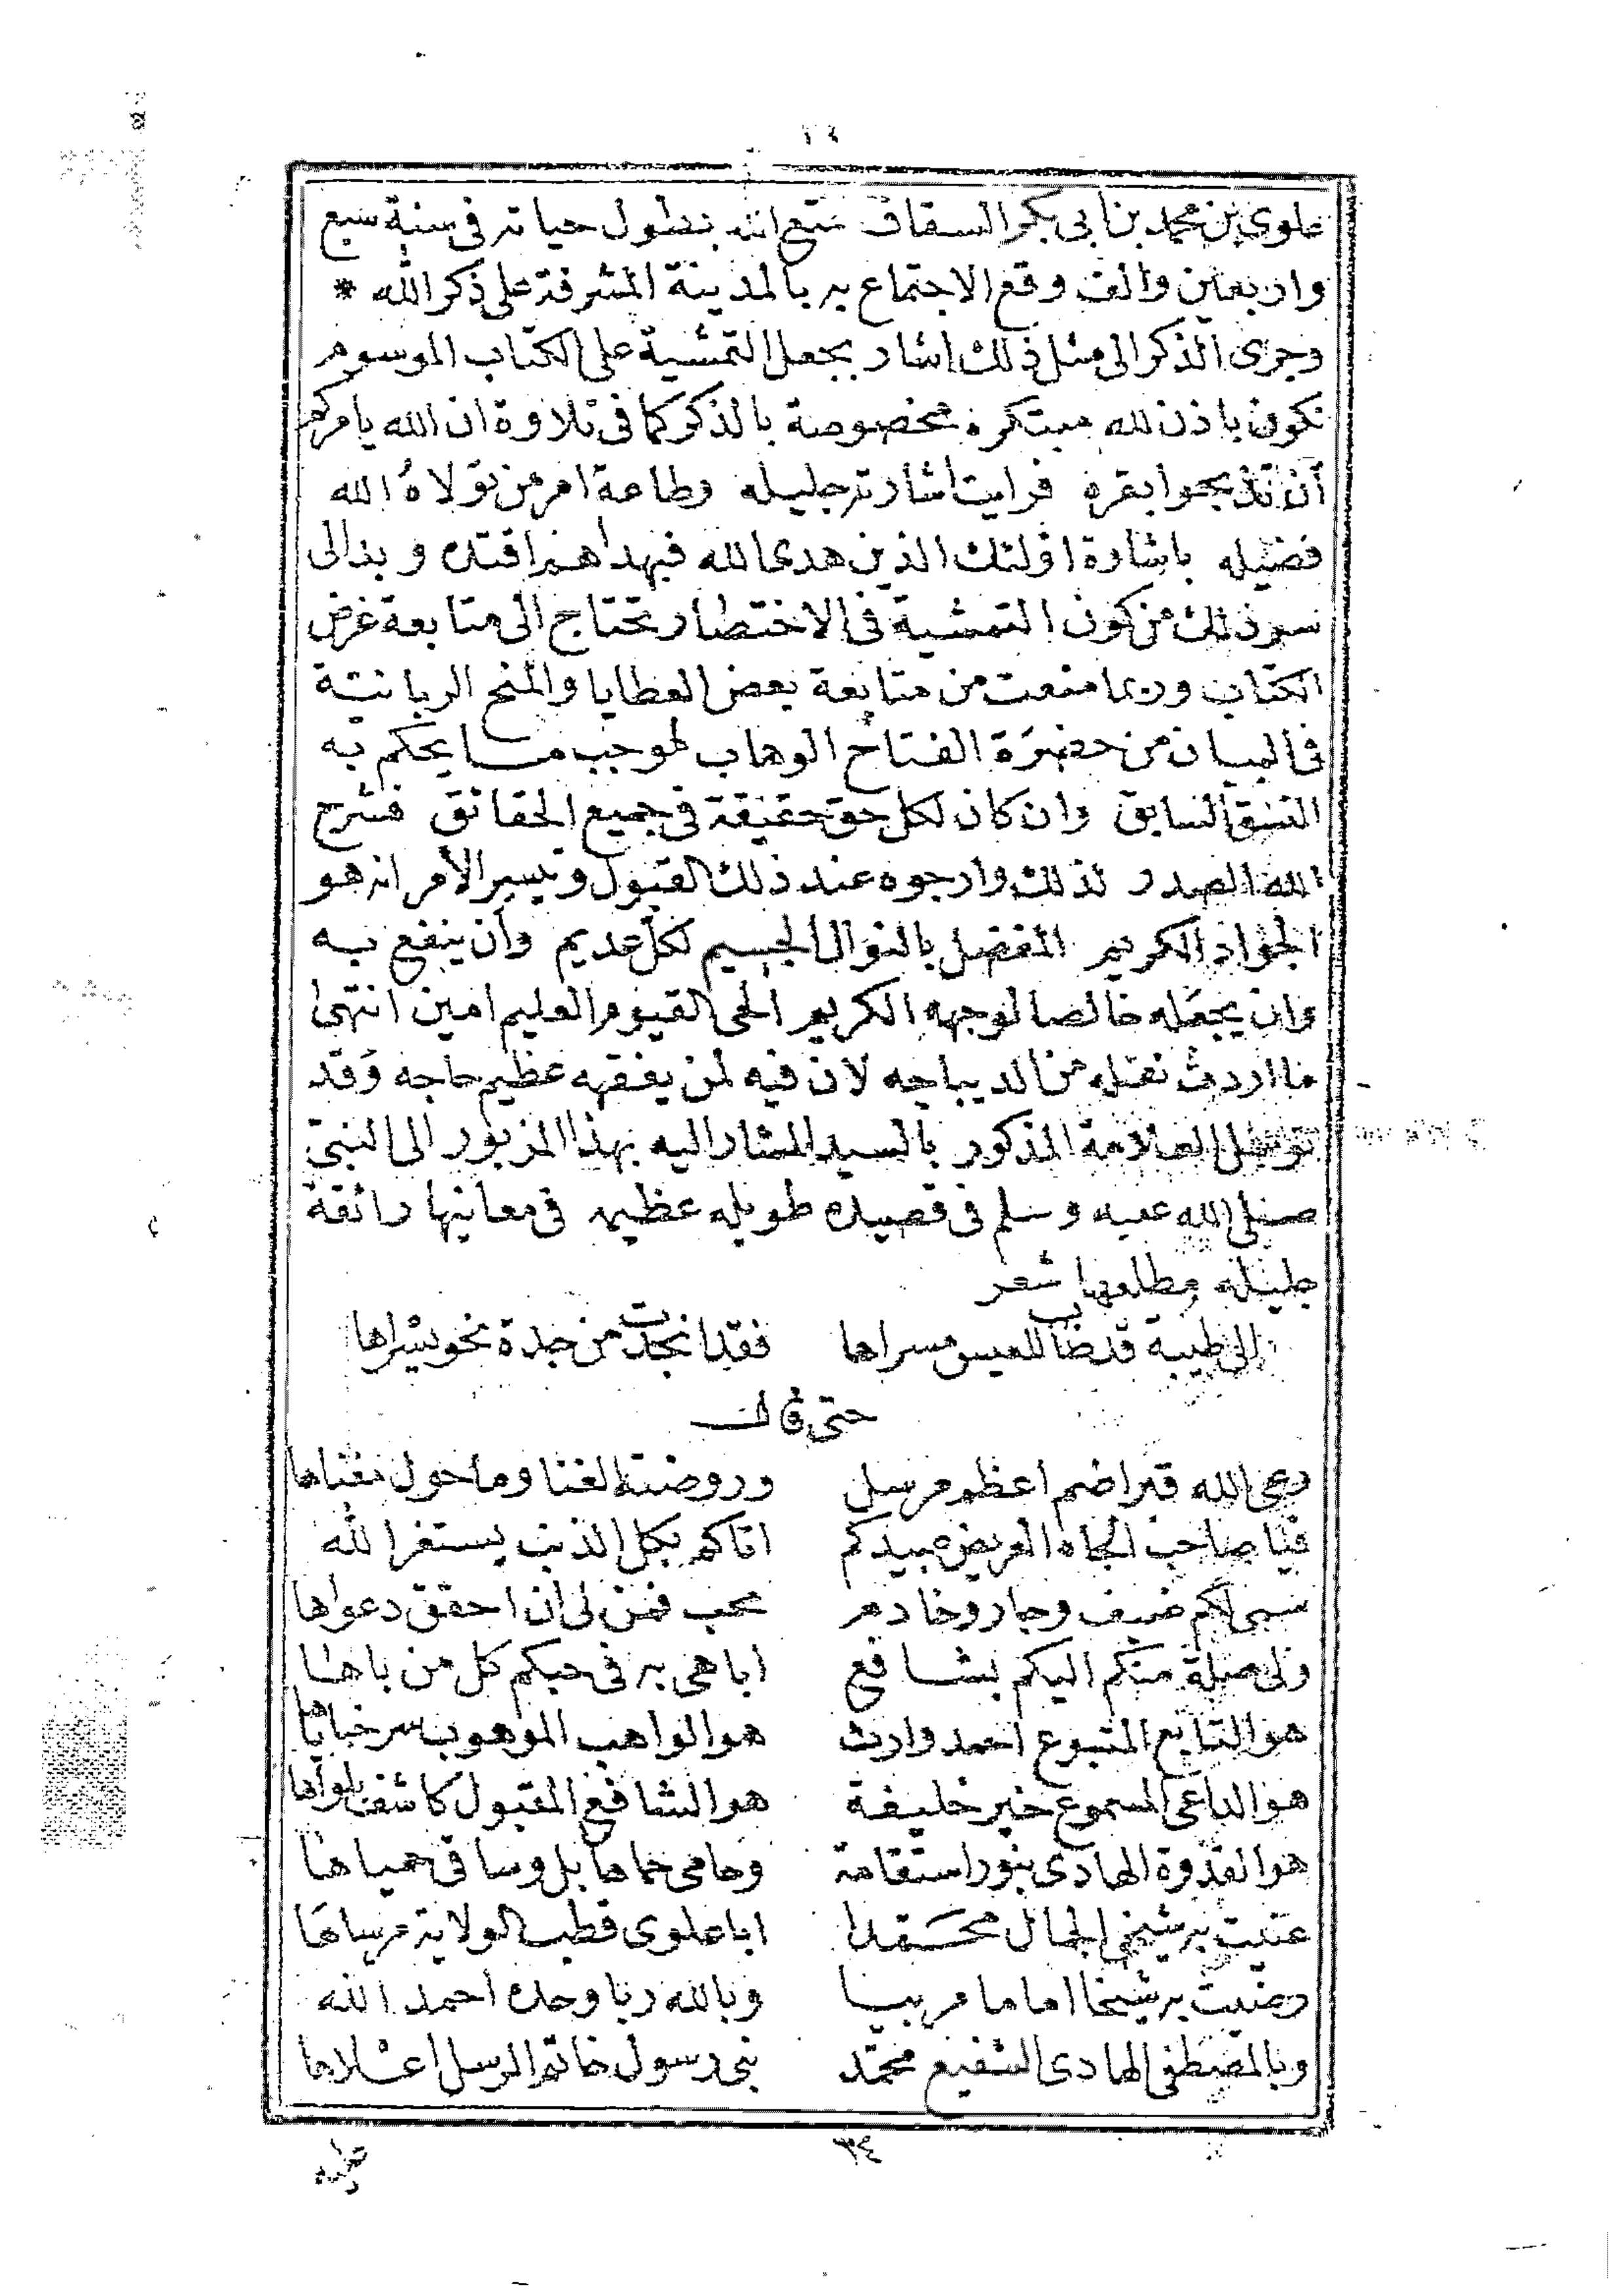 علوى بن محمد بن ابى بكر السقاف متع الله بطول حياته فى سنة سبع
واربعين والف وقع الاجتماع به بالمدينة المشرفة على ذكر الله *
وجرى الذكر الى مثل ذلك اشار بجعل التمشية على الكتاب الموسوم
تكون باذن لله مبتكره مخصوصة بالذكر كما فى تلاوة ان الله يامركم
ان تذبحوا بقره فرايت اشارته جليله وطاعة امر من تولاه الله
فضيله باشارة اولئك الذين هدى الله فبهداهم اقتده وبدالى
سر ذلك من كون التمشية فى الاختصار تحتاج الى متابعة غرض
الكتاب وربما منعت من متابعة بعض العطايا والمنح الربانية
فى البيان من حضرة الفتاح الوهاب لموجب ما يحكم به
النسق السابق وان كان لكل حق حقيقة فى جميع الحقائق فشرح
الله الصدر لذلك وارجوه عند ذلك القبول وتيسير الأمر انه هو
الجواد الكريم المفضل بالنوال الجسيم لكل عديم وأن ينفع به
وان يجعله خالصا لوجهه الكريم الحى القيوم العليم امين انتهى
ما اردت نقله من الديباجه لان فيه لمن يفقهه عظيم حاجه وقد
توسل العلامة المذكور بالسيد المشار اليه بهذا المزبور الى النبى
صلى الله عليه وسلم فى قصيده طويله عظيمه فى معانيها رائقة
جليله مطلعها شعر
الى طيبة قد طاب للعيس مسراها فقد انجدت من جدة نحو يثراها
حتى قال
رعى الله قبرا ضم اعظم مرسل وروضته الغنا وما حول مغناها
فيا صاحب الجاه العريض عبيدكم اتاكم بكل الذنب يستغفر الله
سمى لكم ضيف وجار وخادم محب فمن لى ان احقق دعواها
ولى صلة منكم اليكم بشافع اباهى به فى حبكم كل من باها
هو التابع المتبوع احمد وارث هو الواهب الموهوب سر خباياها
هو الداعى المسموع خير خليفة هو الشافع المقبول كاشف بلواها
هو القدوة الهادى بنور استقامة وحامى حماها بل وساقى حمياها
عنيت به شيخى الجمال محمدا ابا علوى قطب الولاية مرساها
رضيت به شيخا اماما مربيا وبالله ربا وحده احمد الله
وبالمصطفى الهادى الشفيع محمد نبى رسول خاتم الرسل اعلاها
٣٤